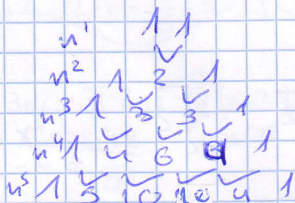 n¹ 1 1
n² 1 2 1
n³ 1 3 3 1
n⁴ 1 4 6 4 1
n⁵ 1 5 10 10 4 1